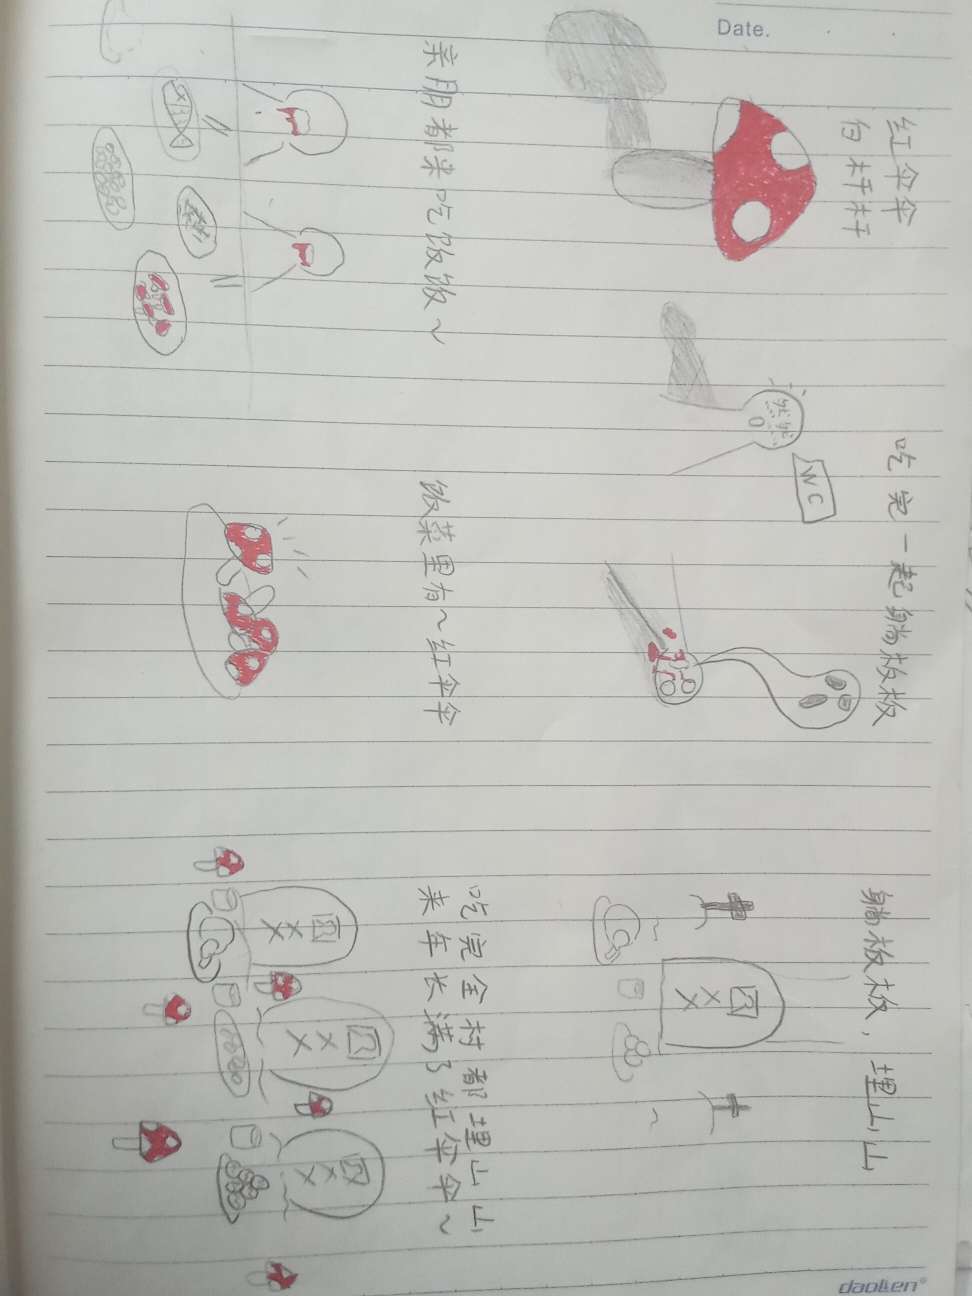 Date.
红伞伞
白杆杆
吃完一起躺板板
WC
躺板板，埋山山
亲朋都来吃饭饭~
饭菜里有~红伞伞
吃完全村都埋山山
来年长满了红伞伞~